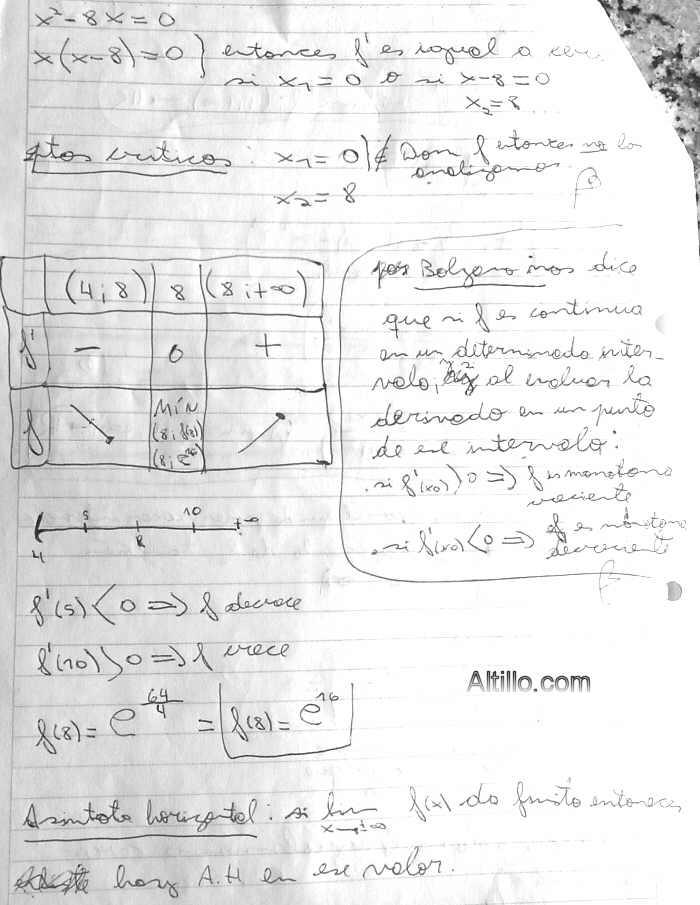 x²-8x=0
x(x-8)=0 } entonces f' es igual a
si x₁=0 o si x-8=0
x₂=8
ptos criticos: x₁=0 ∉ Dom f entonces no los
analizamos.
x₂=8
(4;8) 8 (8;+∞)
f' - 0 +
f MÍN
(8;f(8))
(8;e¹⁶)
Bolzano nos dice
que si f es continua
en un determinado inter-
valo, al evaluar la
derivada en un punto
de ese intervalo:
. si f'(x₀)>0 => f es monotona
creciente
. si f'(x₀)<0 => f es monotona
decreciente
4 5 8 10 +∞
f'(5)<0 => f decrece
f'(10)>0 => f crece
Altillo.com
f(8)= e^(64/4) = f(8)= e¹⁶
Asintota horizontal: si lim x→±∞ f(x) da finito entonces
hay A.H en ese valor.